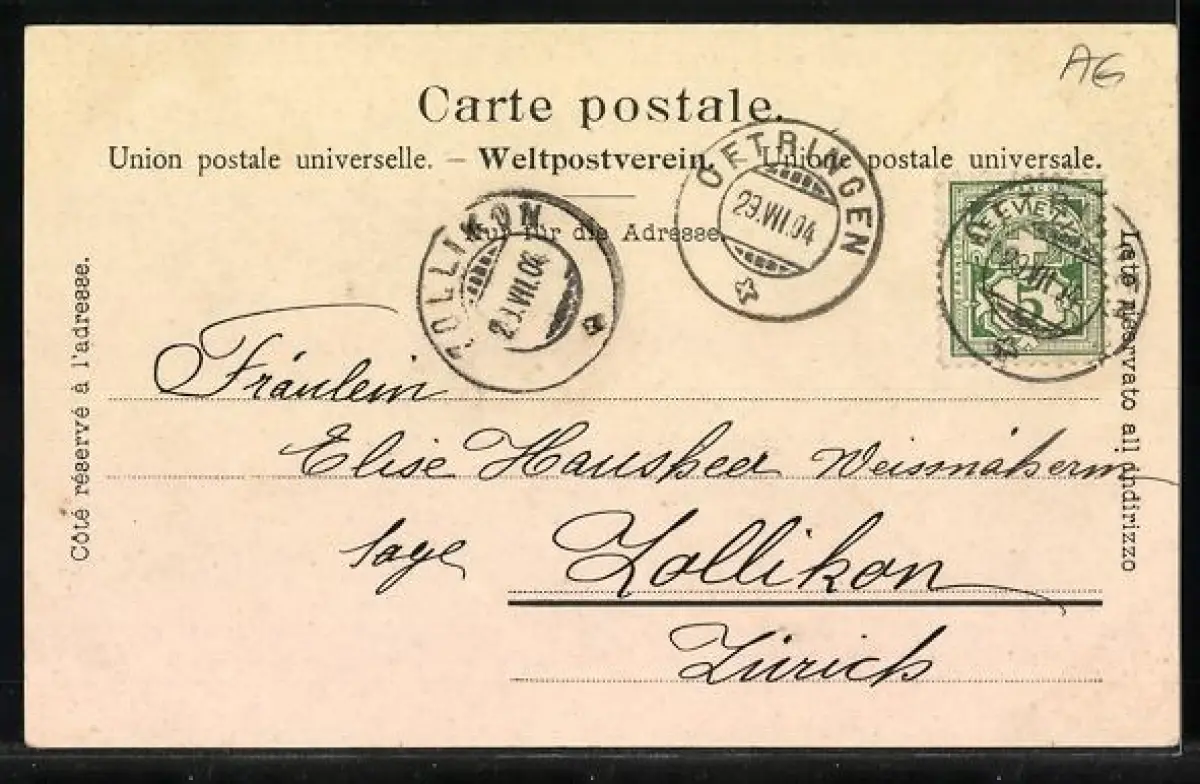 AG
Carte postale.
Union postale universelle. — Weltpostverein. — Unione postale universale.
Nur für die Adresse.
OFTRINGEN
29.VII.04
ZOLLIKON
HELVETIA
5
Côté réservé à l'adresse.
Lato riservato all indirizzo
Fräulein
Elise Hausheer
Zollikon
Zürich